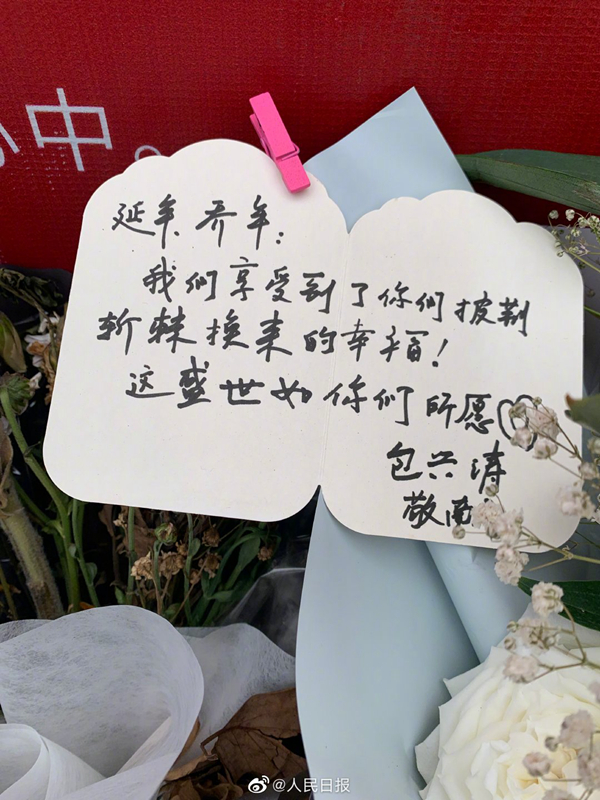 心中。
延年、乔年：
我们享受到了你们披荆
斩棘换来的幸福！
这盛世如你们所愿
包兴涛
敬
@人民日报